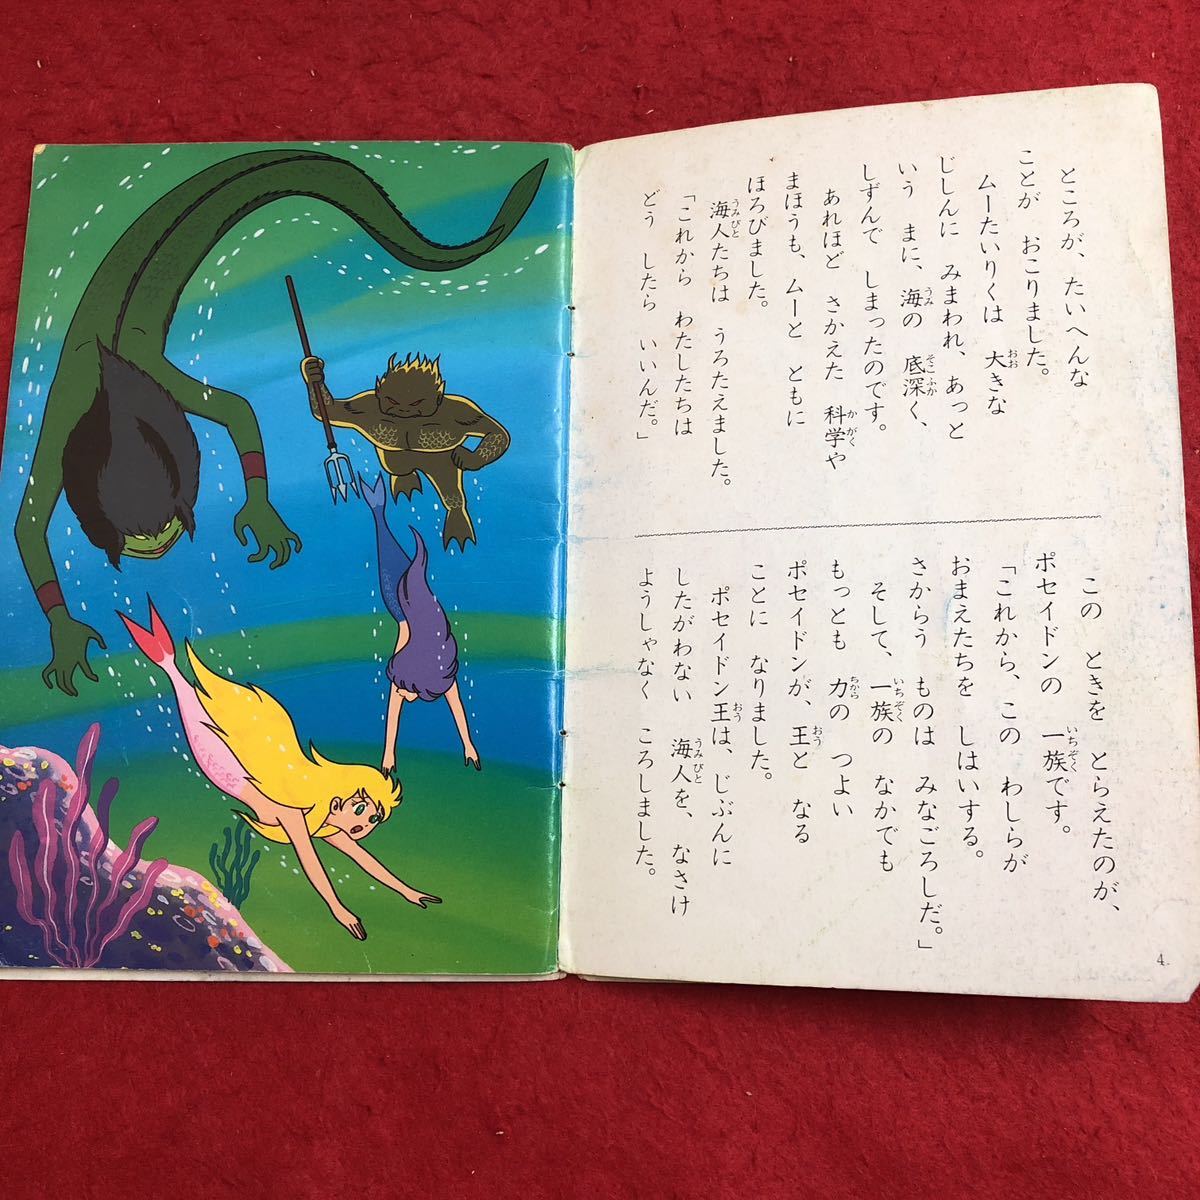 ところが、たいへんな
ことが おこりました。
ムーたいりくは 大きな
じしんに みまわれ、あっと
いう まに、海の 底深く、
しずんで しまったのです。
あれほど さかえた 科学や
まほうも、ムーと ともに
ほろびました。
海人たちは うろたえました。
「これから わたしたちは
どう したら いいんだ。」
この ときを とらえたのが、
ポセイドンの 一族です。
「これから、この わしらが
おまえたちを しはいする。
さからう ものは みなごろしだ。」
そして、一族の なかでも
もっとも 力の つよい
ポセイドンが、王と なる
ことに なりました。
ポセイドン王は、じぶんに
したがわない 海人を、なさけ
ようしゃなく ころしました。
4